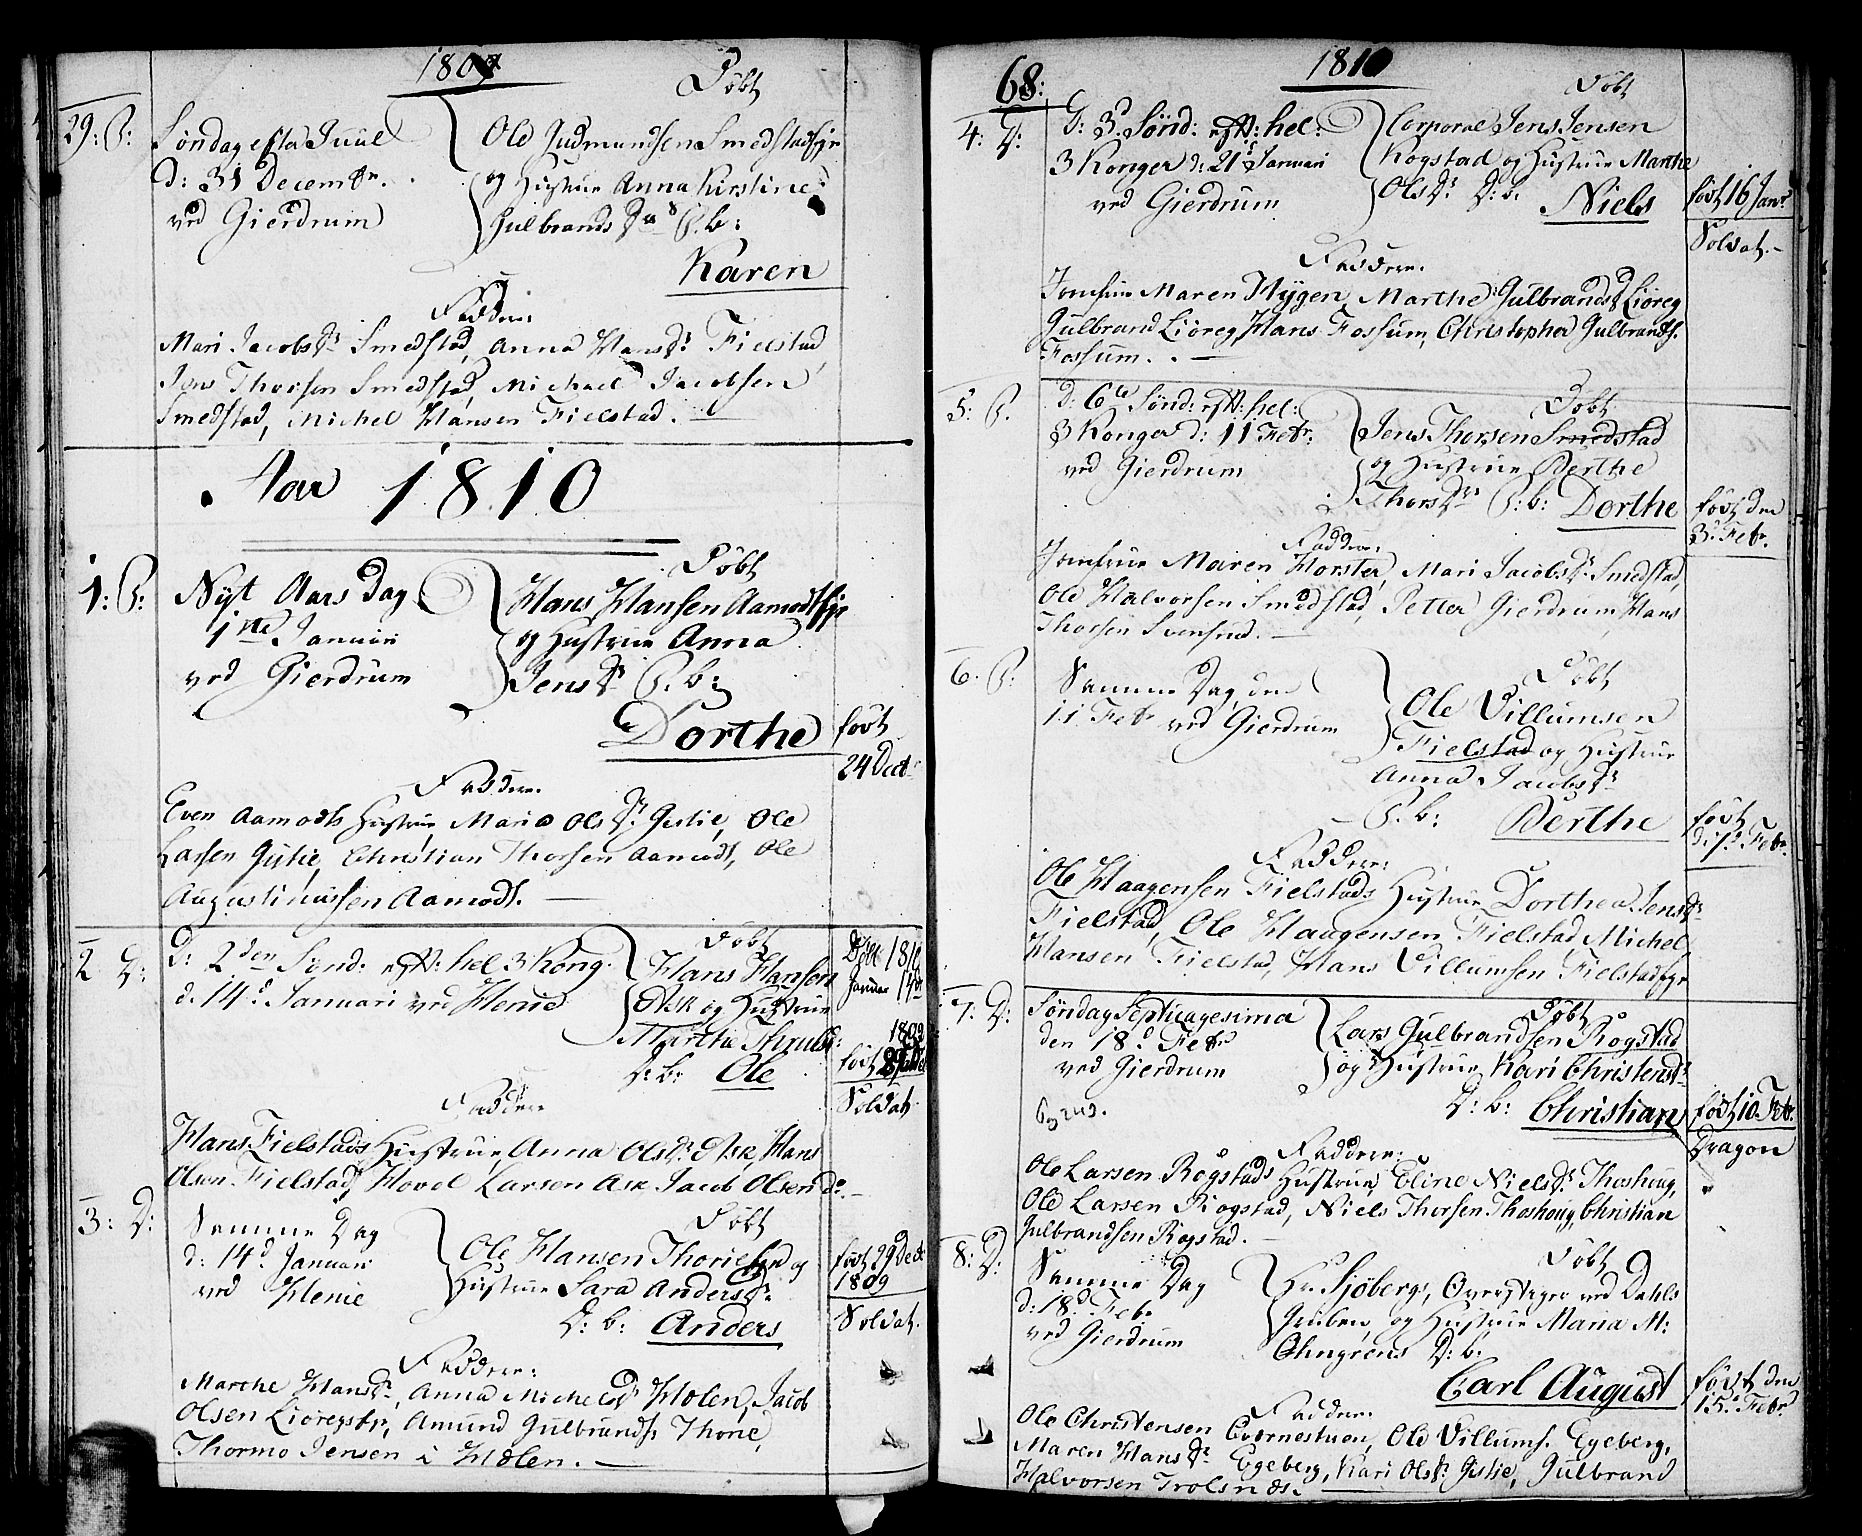 1809
Döbt
29: P:
Søndag efter Juul
d: 31 Decembr.
ved Gierdrum
Ole Gudmundsen Smedstadeje
og Hustrue Anna Kirstine
Gulbrands Dr P.b:
Karen
Faddere
Mari Jacobs Dr Smedstad, Anna Hans Dr Fielstad
Jens Thorsen Smedstad, Michael Jacobsen
Smedstad, Michel Hansen Fielstad.
Aar 1810
1: P:
Döbt
Nyt Aars Dag
1ste Januari
ved Gierdrum
Hans Hansen Aamodteje
og Hustrue Anna
Jens Dr P.b:
Dorthe
født
24 Decbr
Faddere.
Even Aamodts Hustrue, Maria Ols Dr Gislie, Ole
Larsen Gislie, Christian Thorsen Aamodt, Ole
Augustinussen Aamodt.
2 D:
Döbt
d: 2den Sønd: eft: hel 3 Kong.
d. 14d Januari ved Henie
Hans Hansen
Ask og Hustrue
Marthe
D: b: Ole
Døbt 1810
Januar 14de
1809
født
Soldat.
Faddere
Hans Fielstads Hustrue, Anna Ols Dr Ask, Hans
Olsen Fielstad, Hovel Larsen Ask Jacob Olsen do.
3: D:
Döbt
Samme Dag
d: 14d Januari
ved Henie
Ole Hansen Thorieje og
Hustrue Sara Anders Dr
D: b: Anders
født 29 Decbr
1809
Soldat.
Faddere:
Marthe Hans Dr, Anna Michels Dr Holen, Jacob
Olsen Liøregeje, Amund Gulbrands. Thorie,
Thormo Jensen i Holen.
68:
1810
Döbt
4: D:
D: 3d Sønd: eft: hel:
3 Konger d: 21d Januari
ved Gierdrum
Corporal Jens Jensen
Kogstad og Hustrue Marthe
Ols Dr D: b. Niels
født 16 Janr
Soldat.
Faddere.
Jomfrue Maren Hygen, Marthe Gulbrands Dr Liöreg
Gulbrand Liöreg, Hans Fossum, Christopher Gulbrands.
Fossum.
5: P.
Döbt
D: 6te Sønd: eft: hel:
3 Konger d: 11 Febr:
ved Gierdrum
Jens Thorsen Smedstad
og Hustrue Berthe
Thors Dr P: b: Dorthe
født den
3d Febr.
Faddere:
Jomfrue Maren Horster, Mari Jacobs Dr Smedstad,
Ole Halvorsen Smedstad, Petter Gierdrum, Hans
Thorsen Svensrud.
6. P:
Döbt
Samme Dag den
11 Febr ved Gierdrum
Ole Villumsen
Fielstad og Hustrue
Anna Jacobs Dr
P. b: Berthe
født
d: 7d Febr.
Faddere:
Ole Haagensen Fielstads Hustrue Dorthea Jens Dr
Fielstad, Ole Haagensen Fielstad, Michel
Hansen Fielstad, Hans Villumsen Fielstadeje
7: D:
Döbt
Søndag Septuagesima
den 18d Febr
ved Gierdrum
Lars Gulbrandsen Rogstad
og Hustrue Kari Christens Dr
D: b: Christian
født 10 Febr.
Dragon
Faddere:
Ole Larsen Rogstads Hustrue, Eline Niels Dr Thoshoug,
Ole Larsen Rogstad, Niels Thorsen Thoshoug, Christian
Gulbrandsen Rogstad.
8: D:
Döbt
Samme Dag
d: 18d Febr
ved Gierdrum
Hr. Sjöberg, Overstiger ved Dahls
Gruben, og Hustrue Maria M:
Öhngrens D: b:
Carl August
født den
15d Febr
Faddere
Ole Christensen Qvernestuen, Ole Villums. Egeberg,
Maren Hans Dr Egeberg, Kari Ols Dr Gislie, Gulbrand
Halvorsen Trolsnæs.